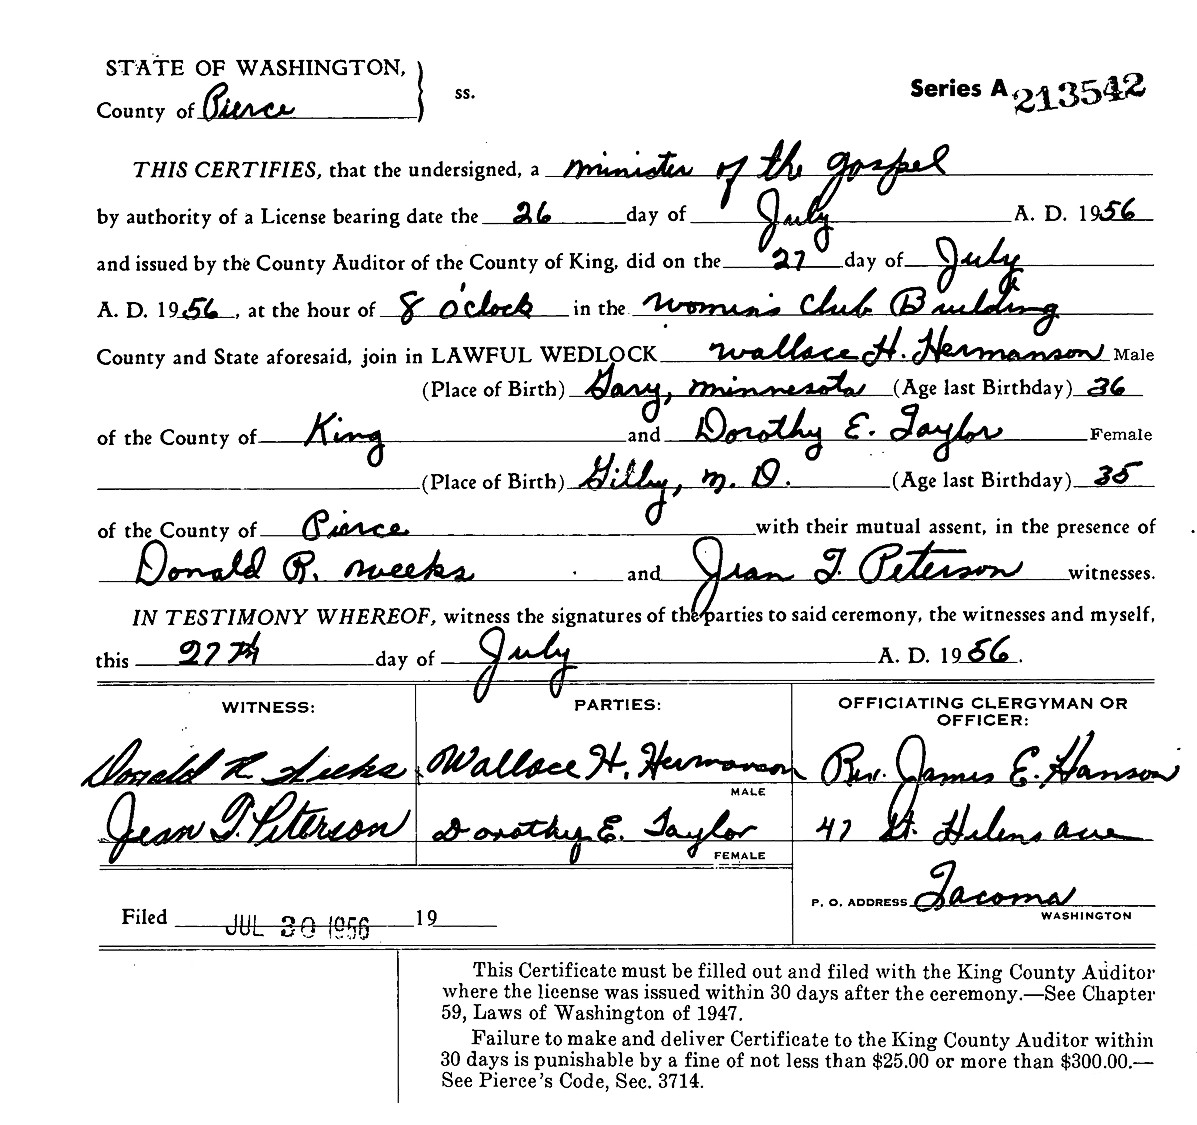 STATE OF WASHINGTON,
County of Pierce ss.
Series A 213542
THIS CERTIFIES, that the undersigned, a minister of the gospel
by authority of a License bearing date the 26 day of July A. D. 1956
and issued by the County Auditor of the County of King, did on the 27 day of July
A. D. 1956, at the hour of 8 o'clock in the Women's Club Building
County and State aforesaid, join in LAWFUL WEDLOCK Wallace H. Hermanson Male
(Place of Birth) Gary, Minnesota (Age last Birthday) 36
of the County of King and Dorothy E. Taylor Female
(Place of Birth) Gilby, N. D. (Age last Birthday) 35
of the County of Pierce with their mutual assent, in the presence of
Donald R. Weeks and Jean T. Peterson witnesses.
IN TESTIMONY WHEREOF, witness the signatures of the parties to said ceremony, the witnesses and myself,
this 27th day of July A. D. 1956.
WITNESS: PARTIES: OFFICIATING CLERGYMAN OR
OFFICER:
Donald R. Weeks Wallace H. Hermanson Rev. James E. Hanson
MALE
Jean T. Peterson Dorothy E. Taylor 47 St. Helens Ave
FEMALE
P. O. ADDRESS Tacoma
WASHINGTON
Filed JUL 30 1956 19
This Certificate must be filled out and filed with the King County Auditor
where the license was issued within 30 days after the ceremony.—See Chapter
59, Laws of Washington of 1947.
Failure to make and deliver Certificate to the King County Auditor within
30 days is punishable by a fine of not less than $25.00 or more than $300.00.—
See Pierce's Code, Sec. 3714.